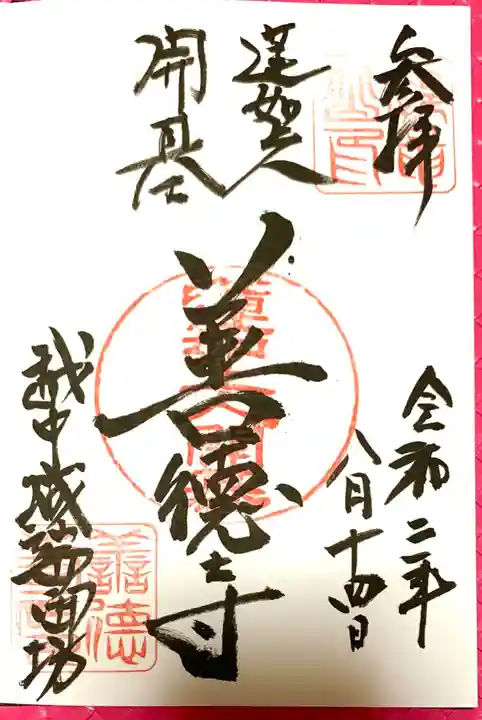 参拝
令和二年
八月十四日
蓮如上人
開基
善德寺
越中城端西坊
善德